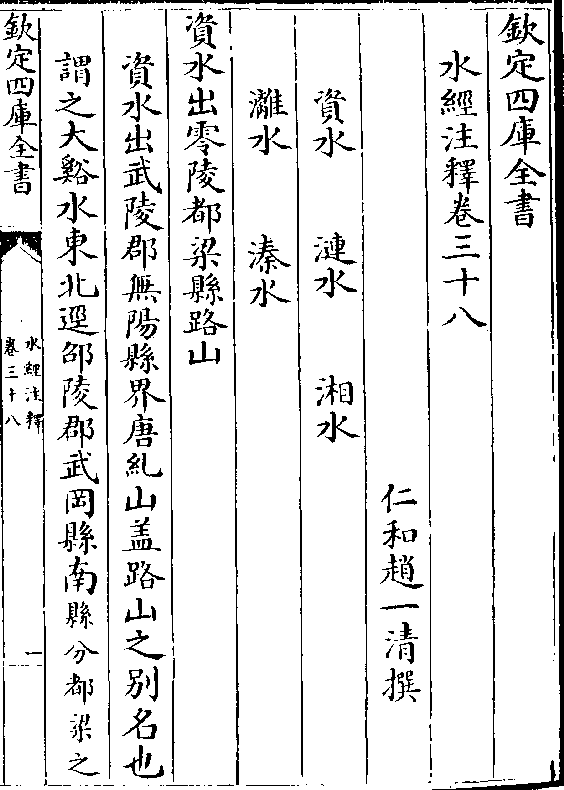 欽定四庫全書
水經注釋卷三十八
仁和趙一清撰
資水　漣水　湘水
灕水　溱水
資水出零陵都梁縣路山
資水出武陵郡無陽縣界唐糺山盖路山之别名也
謂之大谿水東北逕邵陵郡武岡縣南縣分都梁之
欽定四庫全書
水經注釋
卷三十八
一